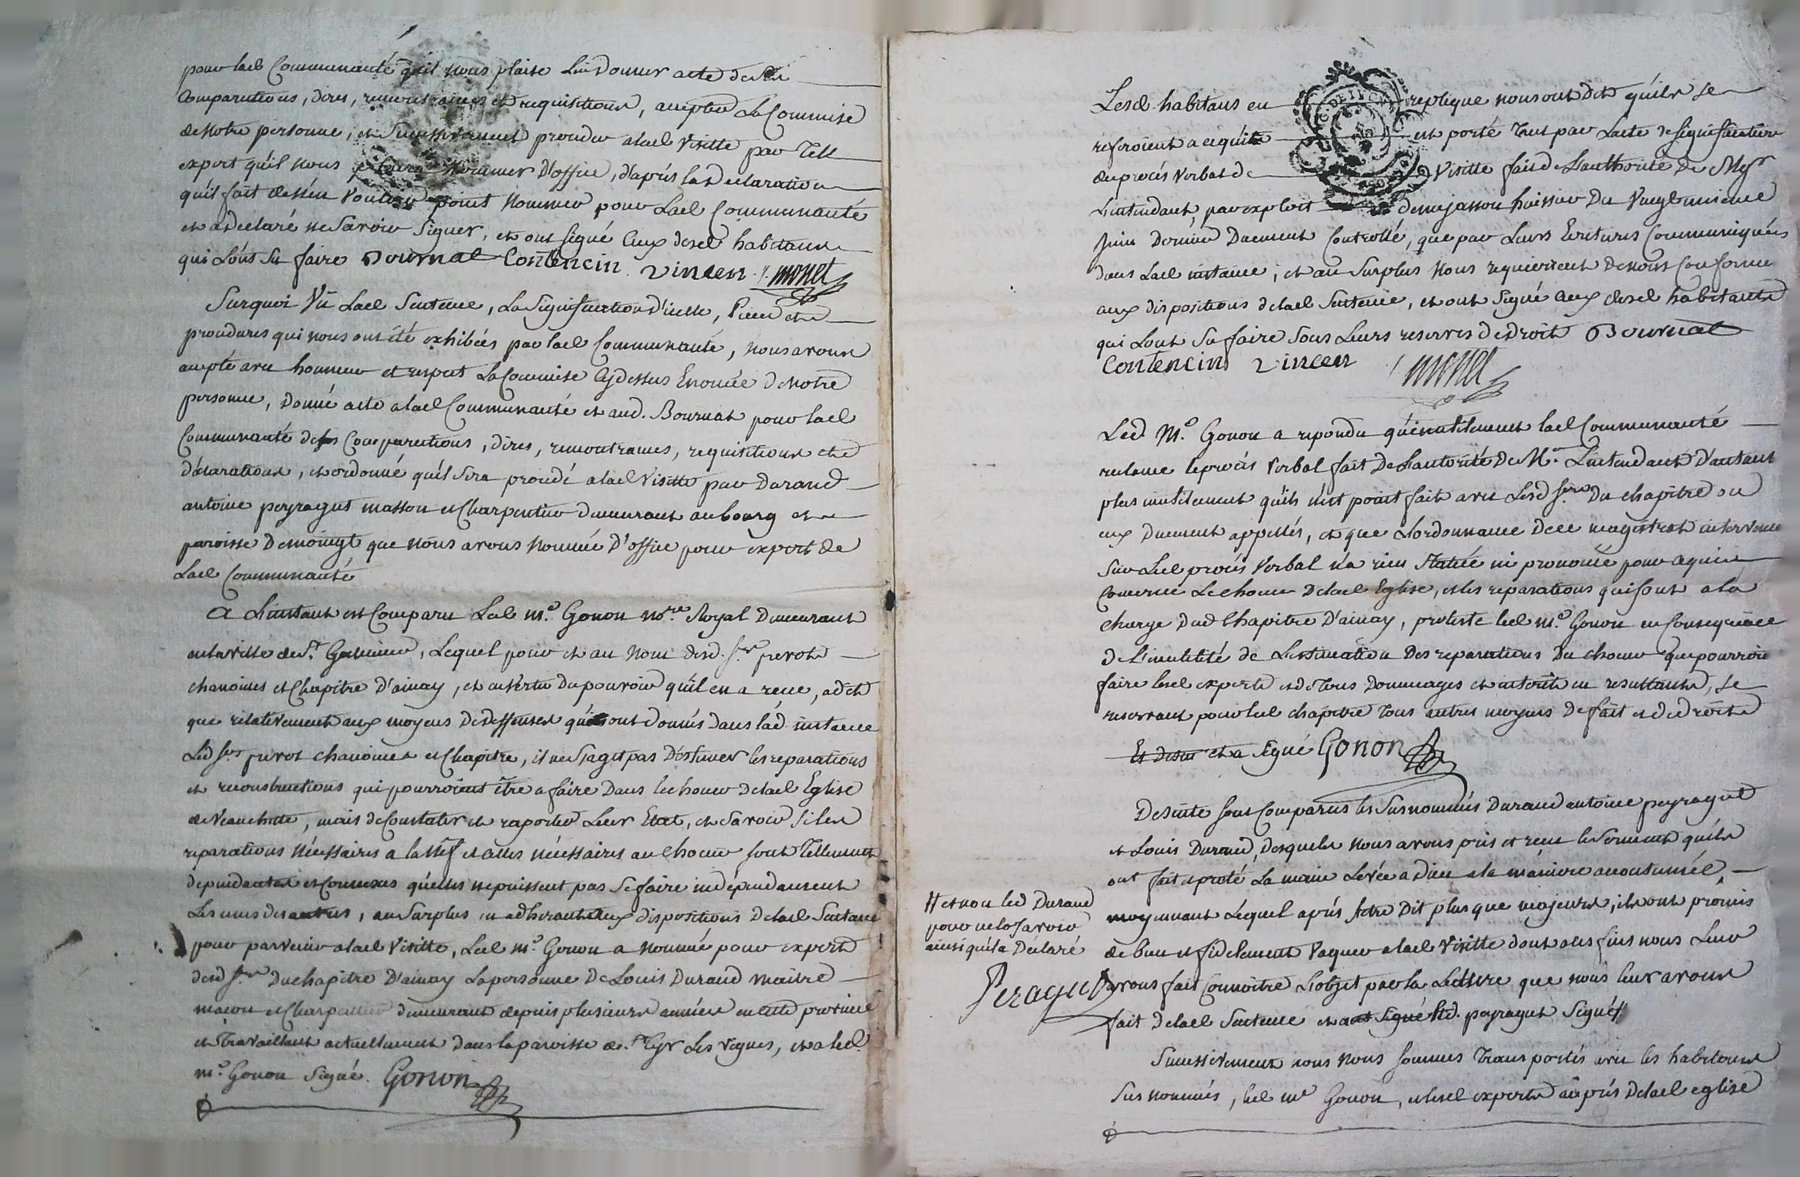 pour lad Communauté qu'il nous plaise lui donner acte de ses
Comparutions, dires, remontrances et requisitions, accepter la Commise
de notre personne, et successivement proceder a lad visitte par tell
expert qu'il nous plaira nommer d'office, d'aprés la declaration
qu'il fait de n'en vouloir point nommer pour lad Communauté
et a declaré ne savoir signer, et ont signé ceux desd habitans
qui l'ont su faire Bournat Contencin vincen monet
Surquoi Vu lad Sentence, la signiffication d'icelle, Pieces et
procedures qui nous ont été exhibées par lad Communauté, nous avons
accepté avec honneur et respect la Commise cydessus Enoncée de notre
personne, donné acte a lad Communauté et aud. Bournat pour lad
Communauté de ses Comparutions, dires, remontrances, requisitions et
déclarations, et ordonné qu'il sera procedé a lad visitte par Durand
antoine peyragut masson et Charpentier demeurant au bourg et
paroisse de moingt que nous avons nommé D'office pour expert de
lad Communauté
A L'instant est Comparu led m.e Gonon no.re Royal demeurant
en la ville de s.t Galmier, lequel pour et au nom desd. s.rs prevot
chanoines et Chapitre d'ainay, et en vertu du pouvoir qu'il en a recu, a dit
que relativement aux moyens de deffenses qu'ont donnés dans lad. instance
Lesd s.rs prevot chanoines et Chapitre, il ne s'agit pas D'estimer les reparations
et reconstructions qui pourroient être a faire dans le choeur de lad Eglise
de Veauchette, mais de Constater et raporter Leur Etat, et savoir si les
reparations nécessaires a la nef et celles nécessaires au choeur sont tellement
dependantes et Connexes qu'elles ne puissent pas se faire indépendament
Les unes des autres, au surplus en adherant aux dispositions de lad Sentence
pour parvenir a lad visitte, led m.e Gonon a nommé pour expert
desd s.rs du chapitre D'ainay la personne de Louis Durand maitre
macon et Charpentier demeurant depuis plusieurs années en cette province
et travaillant actuellement dans la paroisse de s.t Cyr les vignes, et a led
m.e Gonon signé. Gonon
Lesd habitans en replique nous ont dit qu'ils se
referoient a ce qui est porté tant par l'acte de signiffication
du procés verbal de visitte fait de L'authorité de Mgr
L'intendant, par exploit demejasson huissier du vingt uniéme
Juin dernier Duement Controllé, que par leurs Ecritures Communiquées
dans lad instance, et au surplus nous requierrent de nous conformer
aux dispositions de lad Sentence, et ont signé ceux desd habitants
qui l'ont su faire sous leurs reserves de droit Bournat
Contencin vincen monet
Led M.e Gonon a repondu qu'inutilement lad Communauté
reclame le procés verbal fait de L'autorité de M.r L'intendant d'autant
plus inutilement qu'il n'est point fait avec lesd s.rs du chapitre ou
eux Duement appellés, et que L'ordonnance de ce magistrat intervenue
sur led procés verbal n'a rien statué ni prononcé pour ce qui
concerne le choeur de lad Eglise, et les reparations qui sont a la
charge dud Chapitre D'ainay, proteste led m.e Gonon en consequence
de L'inutilité de L'estimation des reparations du choeur que pourroient
faire lesd experts et de tous dommages et interêts en resultants, se
reservant pour led chapitre tous autres moyens de fait et de droit
et a signé Gonon
De suite sont Comparus les susnommés Durand antoine peyragut
et Louis Durand, desquels nous avons pris et recu le serment qu'ils
ont fait et preté la main Levée a dieu a la maniere accoutumée
moyennant Lequel aprés s'etre dit plus que majeurs, ils ont promis
de bien et fidelement vaquer a lad visitte dont a ces fins nous leur
avons fait Connoitre L'objet par la Lecture que nous leur avons
fait de lad Sentence et a signé led. peyragut signé //
// et non led Durand
pour ne le savoir
ainsi qu'il a Declaré
Peragut
Successivement nous nous sommes transportés avec les habitans
sus nommés, led m.e Gonon, et lesd experts auprés de lad eglise